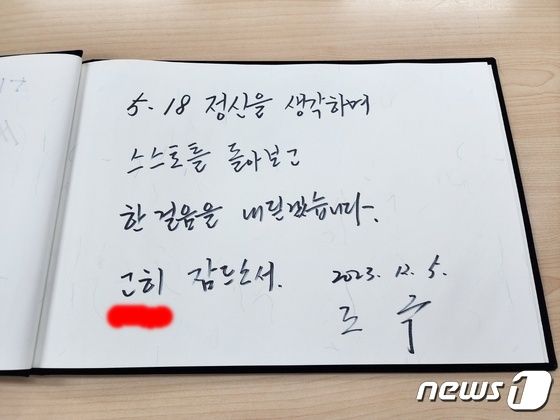 5·18 정신을 생각하며
스스로를 돌아보고
한 걸음을 내딛겠습니다.
고히 잠드소서.
2023. 12. 5.
news1